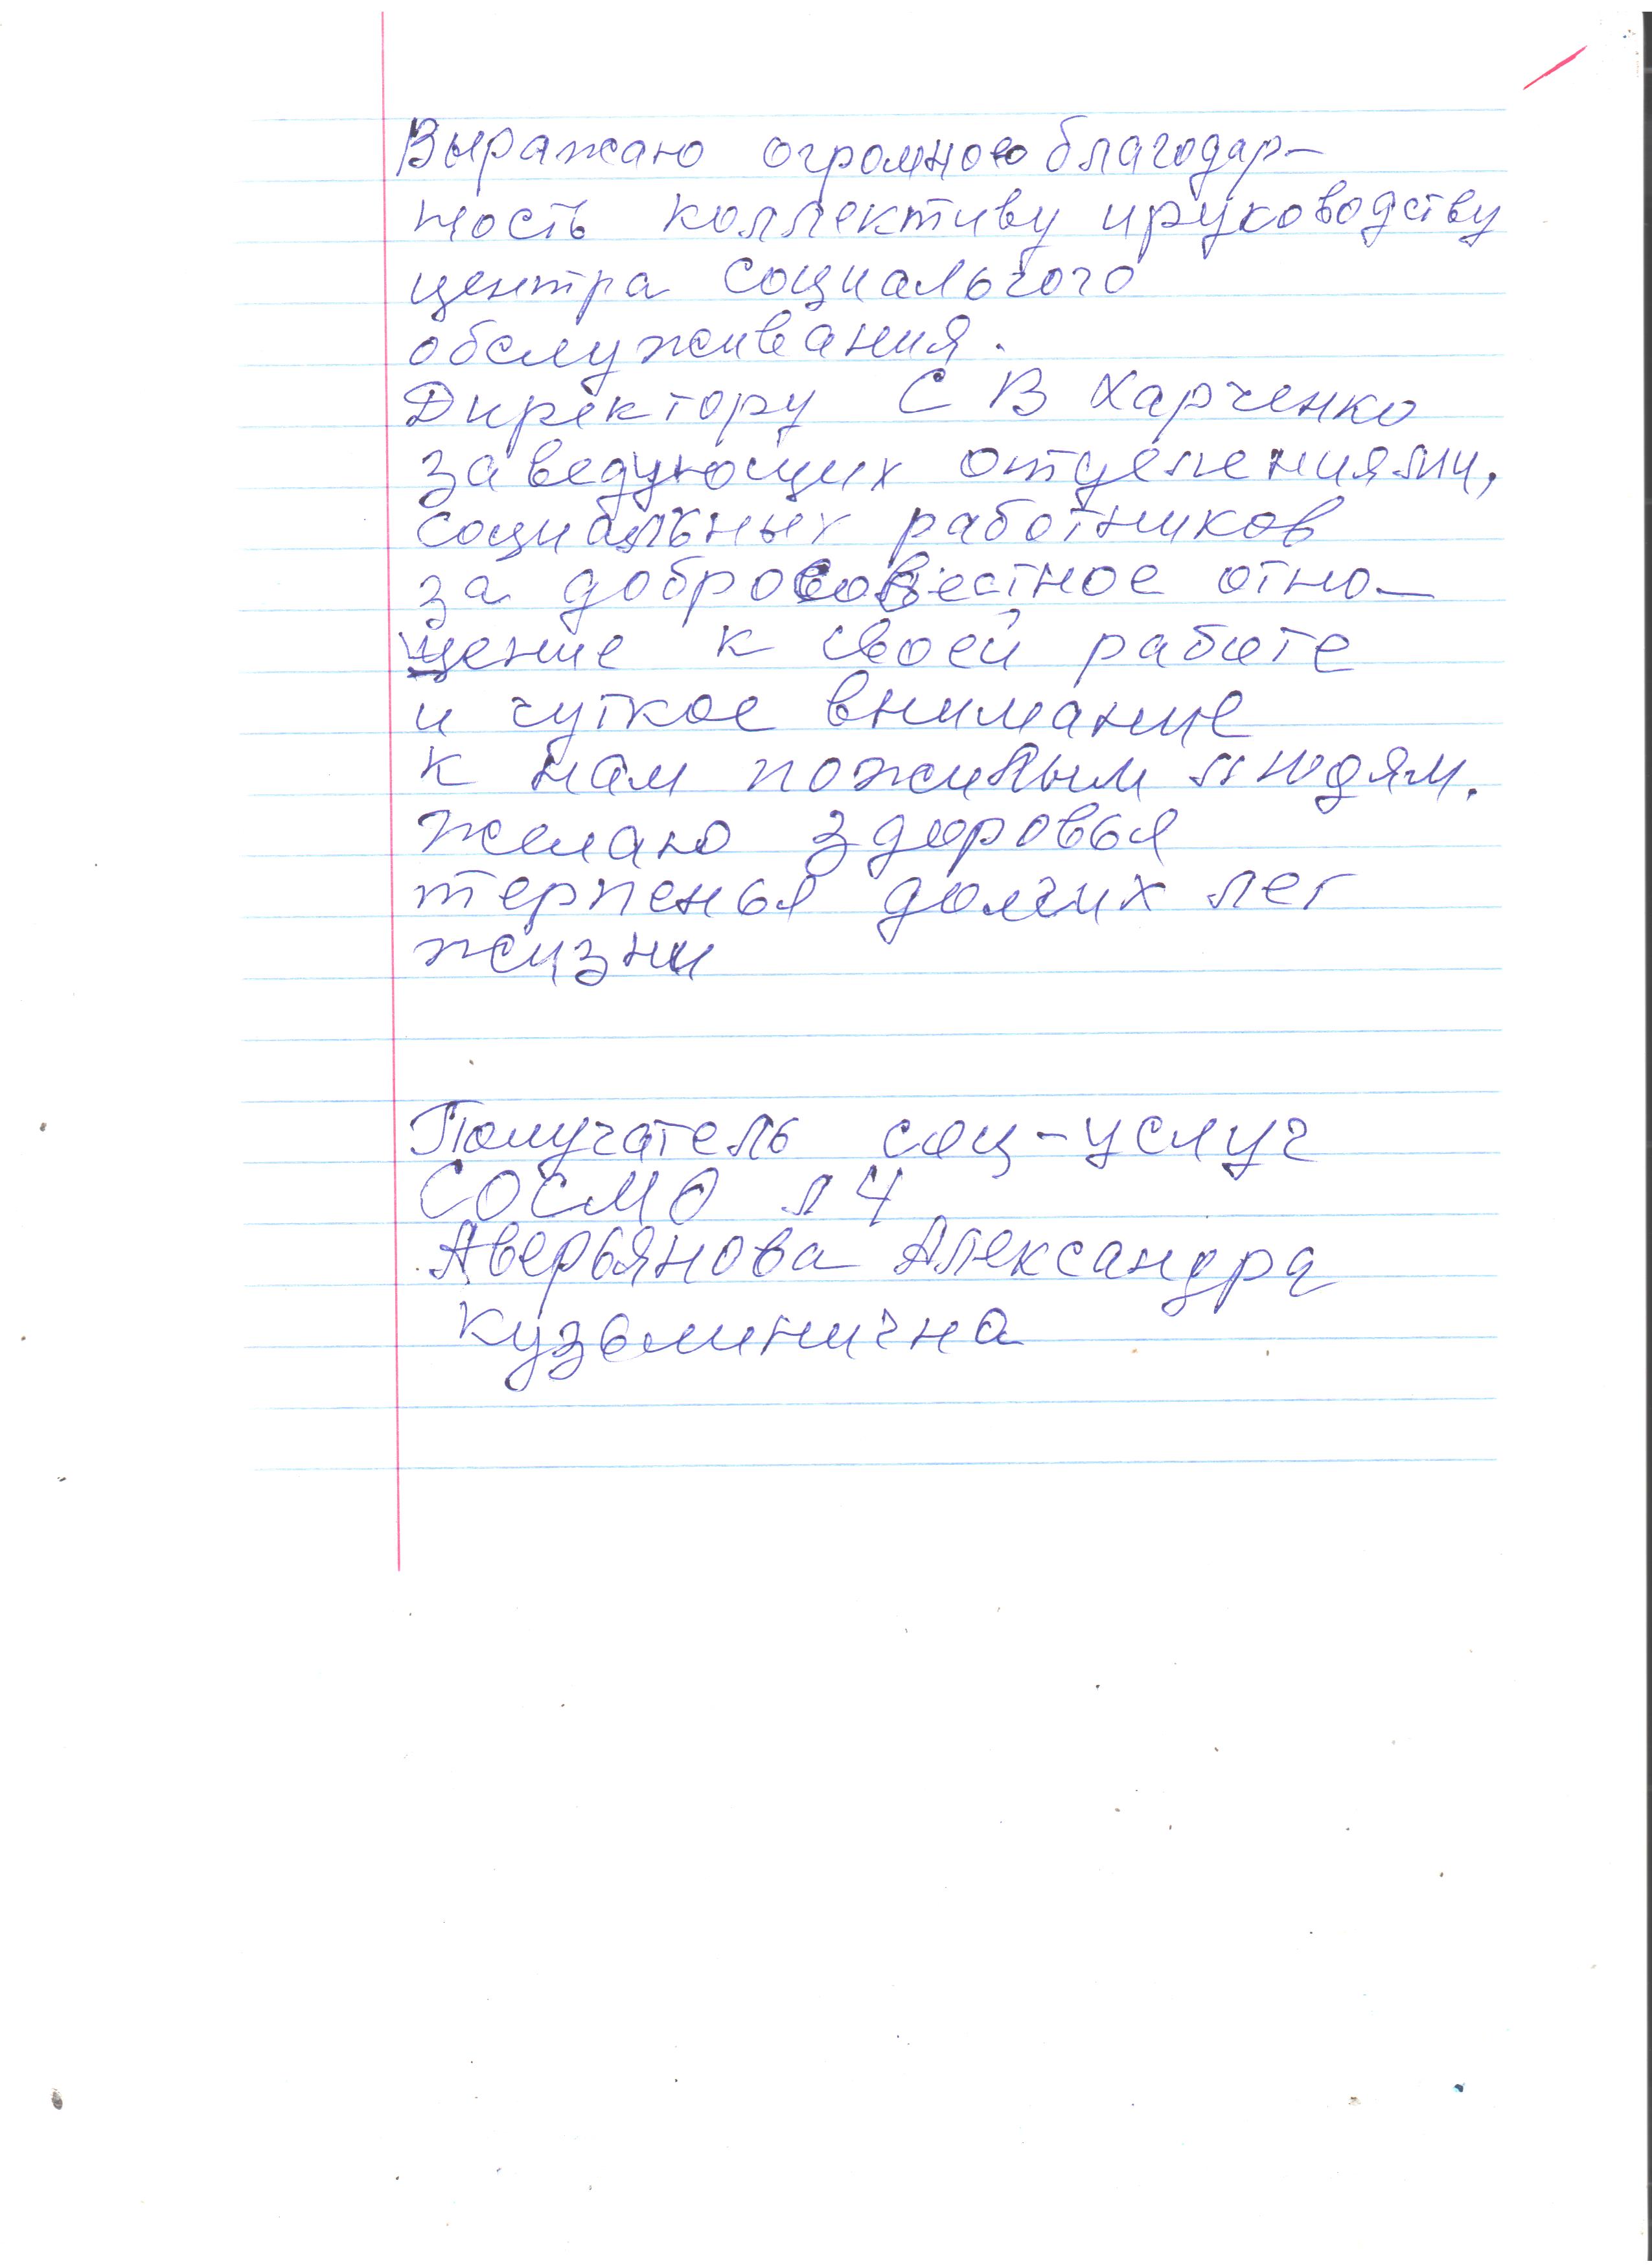 Выражаю огромною благодар-
ность коллективу и руководству
центра социального
обслуживания.
Директору С В Харченко
заведующих отделениями,
социальных работников
за добросовестное отно-
шение к своей работе
и чуткое внимание
к нам пожилым людям.
Желаю здоровья
терпенья долгих лет
жизни
Получатель соц-услуг
СОСМО 4
Аверьянова Александра
Кузьминична